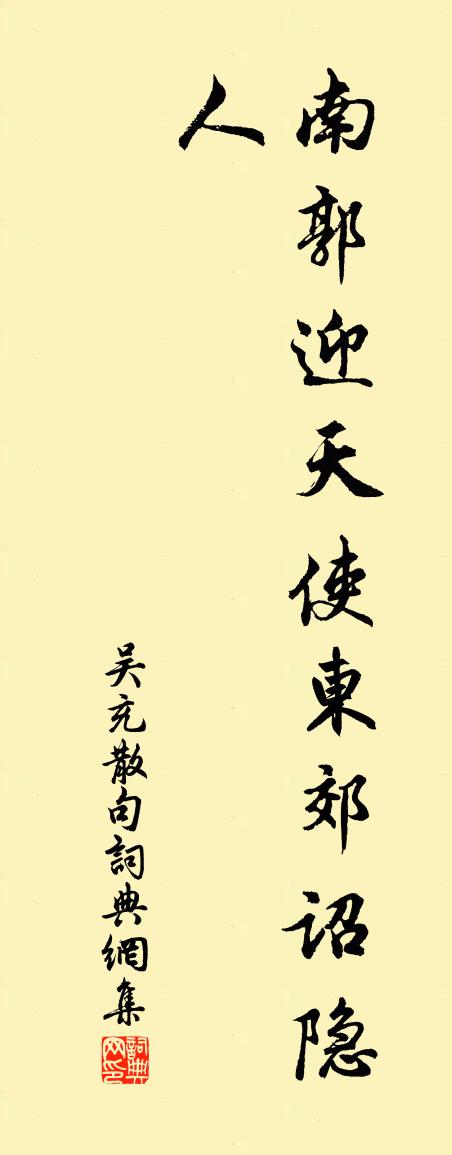 南郭迎天使東郊詔隐
人
吴充散句詞典網集
詞典网印